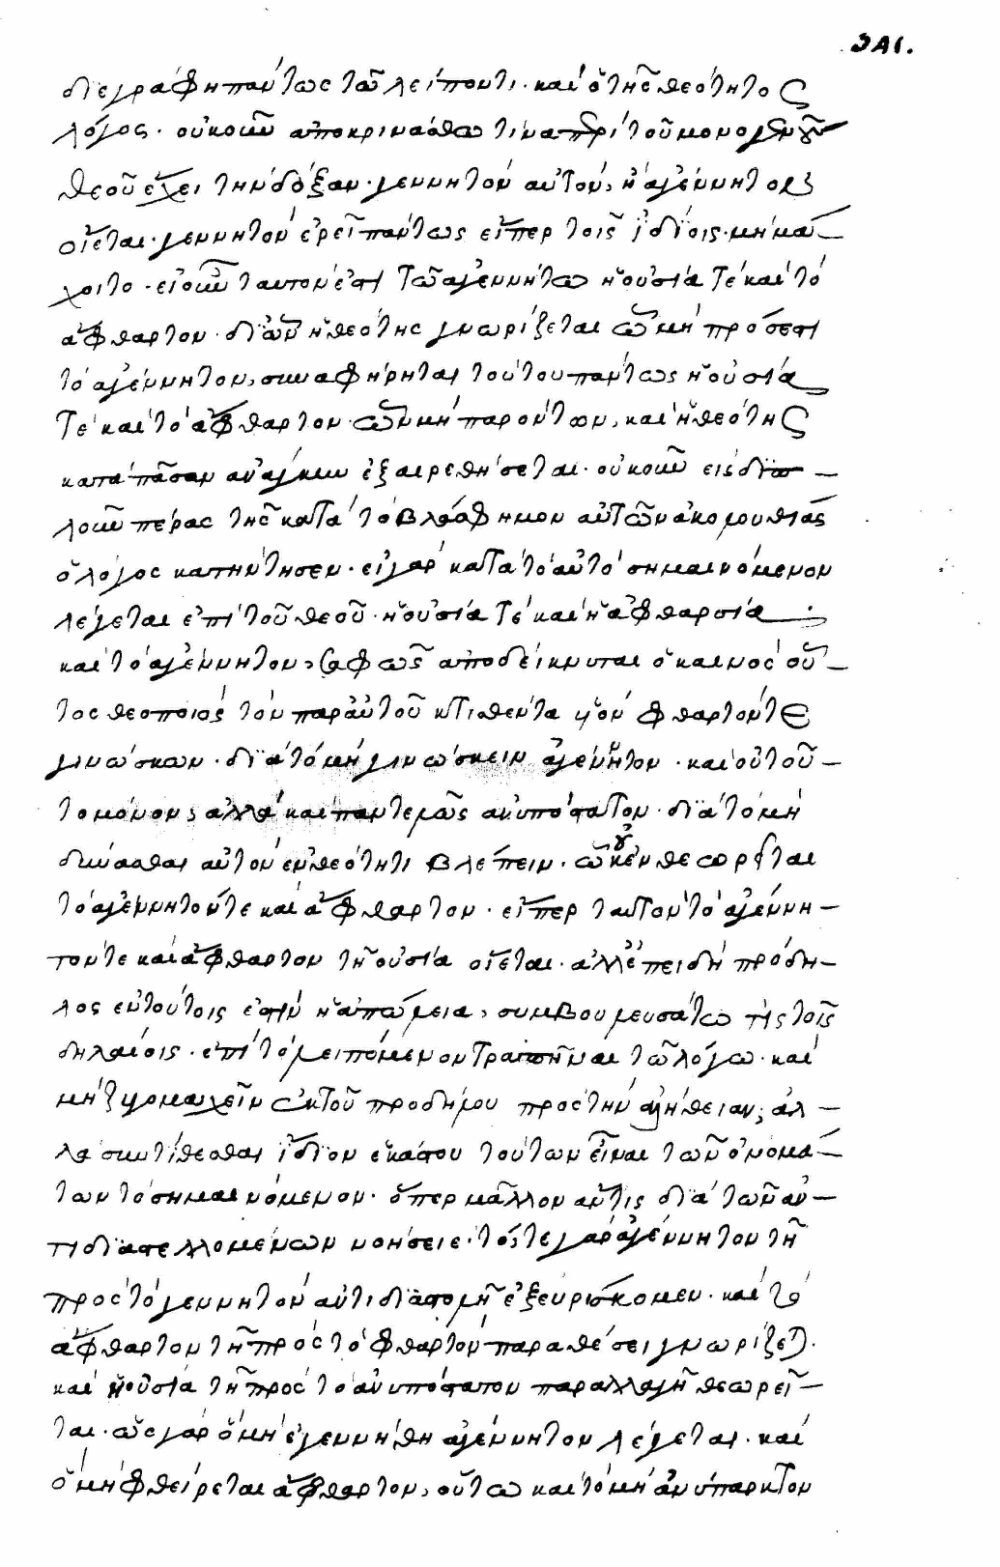 διεγράφη παντως τῶ λείποντι· και ὁ τῆς θεότητος
λόγος· οὐκοῦν αποκρινάσθω τίνα περὶ τοῦ μονογενοῦς
θεοῦ ἔχει την δόξαν· γεννητόν αὐτον, ἢ ἀγέννητον
οἴεται· γεννητόν ἐρεῖ πάντως εἴπερ τοις ἰδίοις μὴ μά
χοιτο· εἰ οὖν ταυτόν ἐστι τῶ ἀγεννήτω ἡ οὐσία τέ και τό
ἄφθαρτον· δι' ὧν ἡ θεότης γνωρίζεται ὧ μή πρόσεστι
τό ἀγέννητον, συναφήρηται τούτου πάντως ἡ οὐσία
τέ και τό ἄφθαρτον· ὧν μή παρόντων, και ἡ θεότης
κατά πᾶσαν ανάγκην ἐξαιρεθήσεται· οὐκοῦν εἰς διπ
λοῦν πέρας τῆς κατά τό βλάσφημον αὐτῶν ἀκολουθίας
ὁ λόγος κατήντησεν· εἰ γάρ κατά τό αὐτό σημαινόμενον
λέγεται επί τοῦ θεοῦ· ἡ οὐσία τέ και ἡ ἀφθαρσία
και τό ἀγέννητον, σαφῶς αποδείκνυται ὁ καινός οὗ
τος θεοποιός τόν παρ' αὐτοῦ κτισθέντα υἱόν φθαρτόν τε
γινώσκων· διά τό μή γινώσκειν ἀγέννητον· και οὐ τοῦ
το μόνον, ἀλλά και παντελῶς ανύπόστατον· διά τό μή
δύνασθαι αὐτόν εν θεότητι βλέπειν· ὧ οὐκ ἐνθεωρεῖται
τό ἀγέννητόν τε και ἄφθαρτον· εἴπερ ταυτόν τό ἀγέννη
τόν τε και ἄφθαρτον τῆ οὐσία οἴεται· ἀλλ' ἐπειδή πρόδη
λος εν τούτοις ἐστίν ἡ ἀπώλεια, συμβουλευσάτω τίς τοῖς
δηλαίοις· επί τό λειπόμενον τραπῆναι τῶ λόγω· και
μή ζυγομαχεῖν ἐκ τοῦ προδήλου προς τήν ἀλήθειαν, ἀλ
λά συντίθεσθαι ἴδιον ἑκάστου τούτων εἶναι τῶν ὀνομά
των τό σημαινόμενον· ὅπερ μᾶλλον αν τις διά τῶν αν
τιδιαστελλομένων νοήσειε· τό τε γάρ ἀγέννητον τῆ
πρός τό γεννητόν αντιδιαστολῆ ἐξευρίσκομεν· και τό
ἄφθαρτον τῆ πρός τό φθαρτόν παραθέσει γνωρίζεται·
και ἡ οὐσία τῆ πρός τό ανυπόστατον παραλλαγῆ θεωρεῖ
ται· ὡς γάρ ὅ μή ἐγεννήθη ἀγέννητον λέγεται· και
ὅ μή φθείρεται ἄφθαρτον, οὕτω και τό μή ἀνύπαρκτον